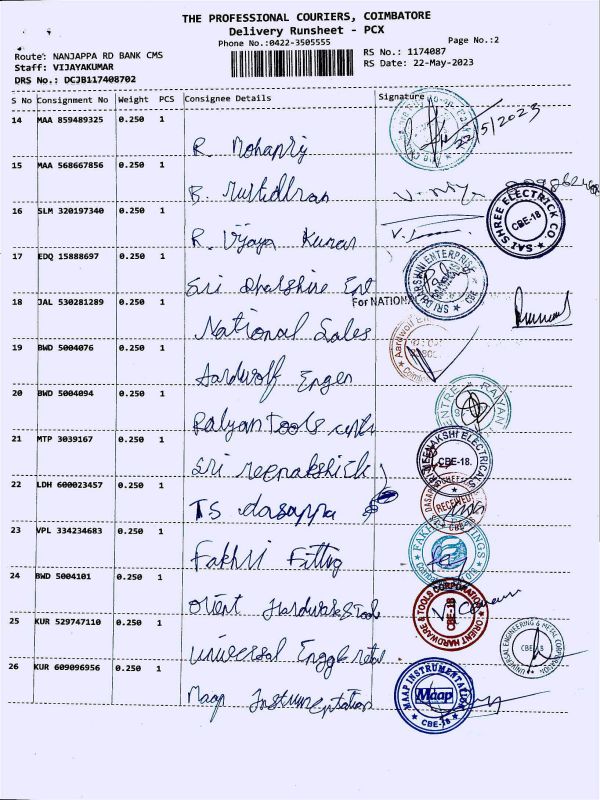 THE PROFESSIONAL COURIERS, COIMBATORE
Delivery Runsheet - PCX
Phone No.:0422-3505555
Page No.:2
Route: NANJAPPA RD BANK CMS
Staff: VIJAYAKUMAR
DRS No.: DCJB117408702
RS No.: 1174087
RS Date: 22-May-2023
S No Consignment No Weight PCS Consignee Details Signature
14 MAA 859489325 0.250 1
22/5/2023
R. Mohanriy
15 MAA 568667856 0.250 1
16 SLM 320197340 0.250 1
SAI SHREE ELECTRICK CO. CBE-18
R. Vijaya Kumar
17 EDQ 15888697 0.250 1
SRI DHARSHINI ENTERPRISE
Sri Dharshire Ent
18 JAL 530281289 0.250 1
For NATIONAL
National Sales
19 BWD 5004076 0.250 1
Aardwolf
Aardwolf Engen
20 BWD 5004094 0.250 1
Ralyan Tools
21 MTP 3039167 0.250 1
SRI MEENAKSHI ELECTRICAL CBE-18.
Sri
22 LDH 600023457 0.250 1
RECEIVED
TS dasappa
23 VPL 334234683 0.250 1
FAKHRI FITTINGS
Fakhri Fitting
24 BWD 5004101 0.250 1
ORIENT HARDWARE & TOOLS CORPORATION CBE-18
Orient Hardware & Tools
25 KUR 529747110 0.250 1
UNIVERSAL ENGINEERING & METAL CORPORATION CBE-18
Universal Engg & Metal
26 KUR 609096956 0.250 1
MAAP INSTRUMENTATION Maap CBE-18
Maap Instrumentation